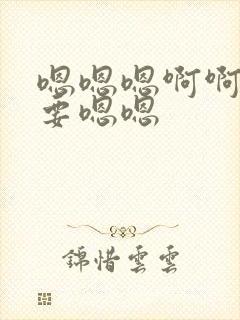 嗯嗯嗯啊啊
要嗯嗯
錦惜雲雲